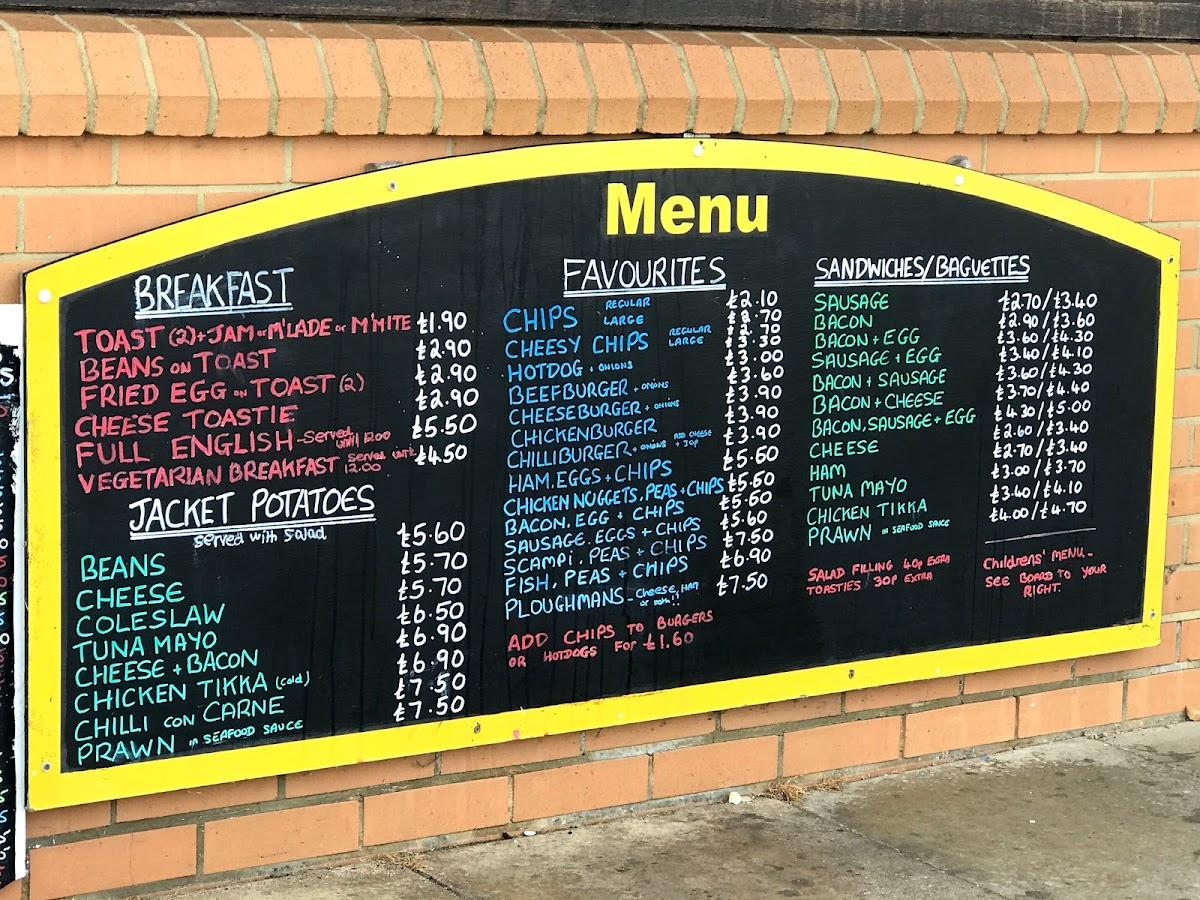 Menu
BREAKFAST
TOAST (2) + JAM or M'LADE or M'MITE £1.90
BEANS ON TOAST £2.90
FRIED EGG ON TOAST (2) £2.90
CHEESE TOASTIE £2.90
FULL ENGLISH - Served until 12.00 £5.50
VEGETARIAN BREAKFAST Served until 12.00 £4.50
JACKET POTATOES
Served with Salad
BEANS £5.60
CHEESE £5.70
COLESLAW £5.70
TUNA MAYO £6.50
CHEESE + BACON £6.90
CHICKEN TIKKA (cold) £6.90
CHILLI CON CARNE £7.50
PRAWN IN SEAFOOD SAUCE £7.50
FAVOURITES
CHIPS REGULAR £2.10
LARGE £2.70
CHEESY CHIPS REGULAR £2.70
LARGE £3.30
HOTDOG + ONIONS £3.00
BEEFBURGER + ONIONS £3.60
CHEESEBURGER + ONIONS £3.90
CHICKENBURGER £3.90
CHILLIBURGER + ONIONS ADD CHEESE + 30P £3.90
HAM, EGGS + CHIPS £5.50
CHICKEN NUGGETS, PEAS + CHIPS £5.50
BACON, EGG + CHIPS £5.50
SAUSAGE, EGGS + CHIPS £5.60
SCAMPI, PEAS + CHIPS £7.50
FISH, PEAS + CHIPS £6.90
PLOUGHMANS - Cheese, Ham or both!! £7.50
ADD CHIPS TO BURGERS
OR HOTDOGS FOR £1.60
SANDWICHES/BAGUETTES
SAUSAGE £2.70/£3.40
BACON £2.90/£3.60
BACON + EGG £3.60/£4.30
SAUSAGE + EGG £3.40/£4.10
BACON + SAUSAGE £3.60/£4.30
BACON + CHEESE £3.70/£4.40
BACON, SAUSAGE + EGG £4.30/£5.00
CHEESE £2.60/£3.40
HAM £2.70/£3.40
TUNA MAYO £3.00/£3.70
CHICKEN TIKKA £3.40/£4.10
PRAWN IN SEAFOOD SAUCE £4.00/£4.70
SALAD FILLING 40p EXTRA
TOASTIES 30P EXTRA
Childrens' MENU..
SEE BOARD TO YOUR
RIGHT.